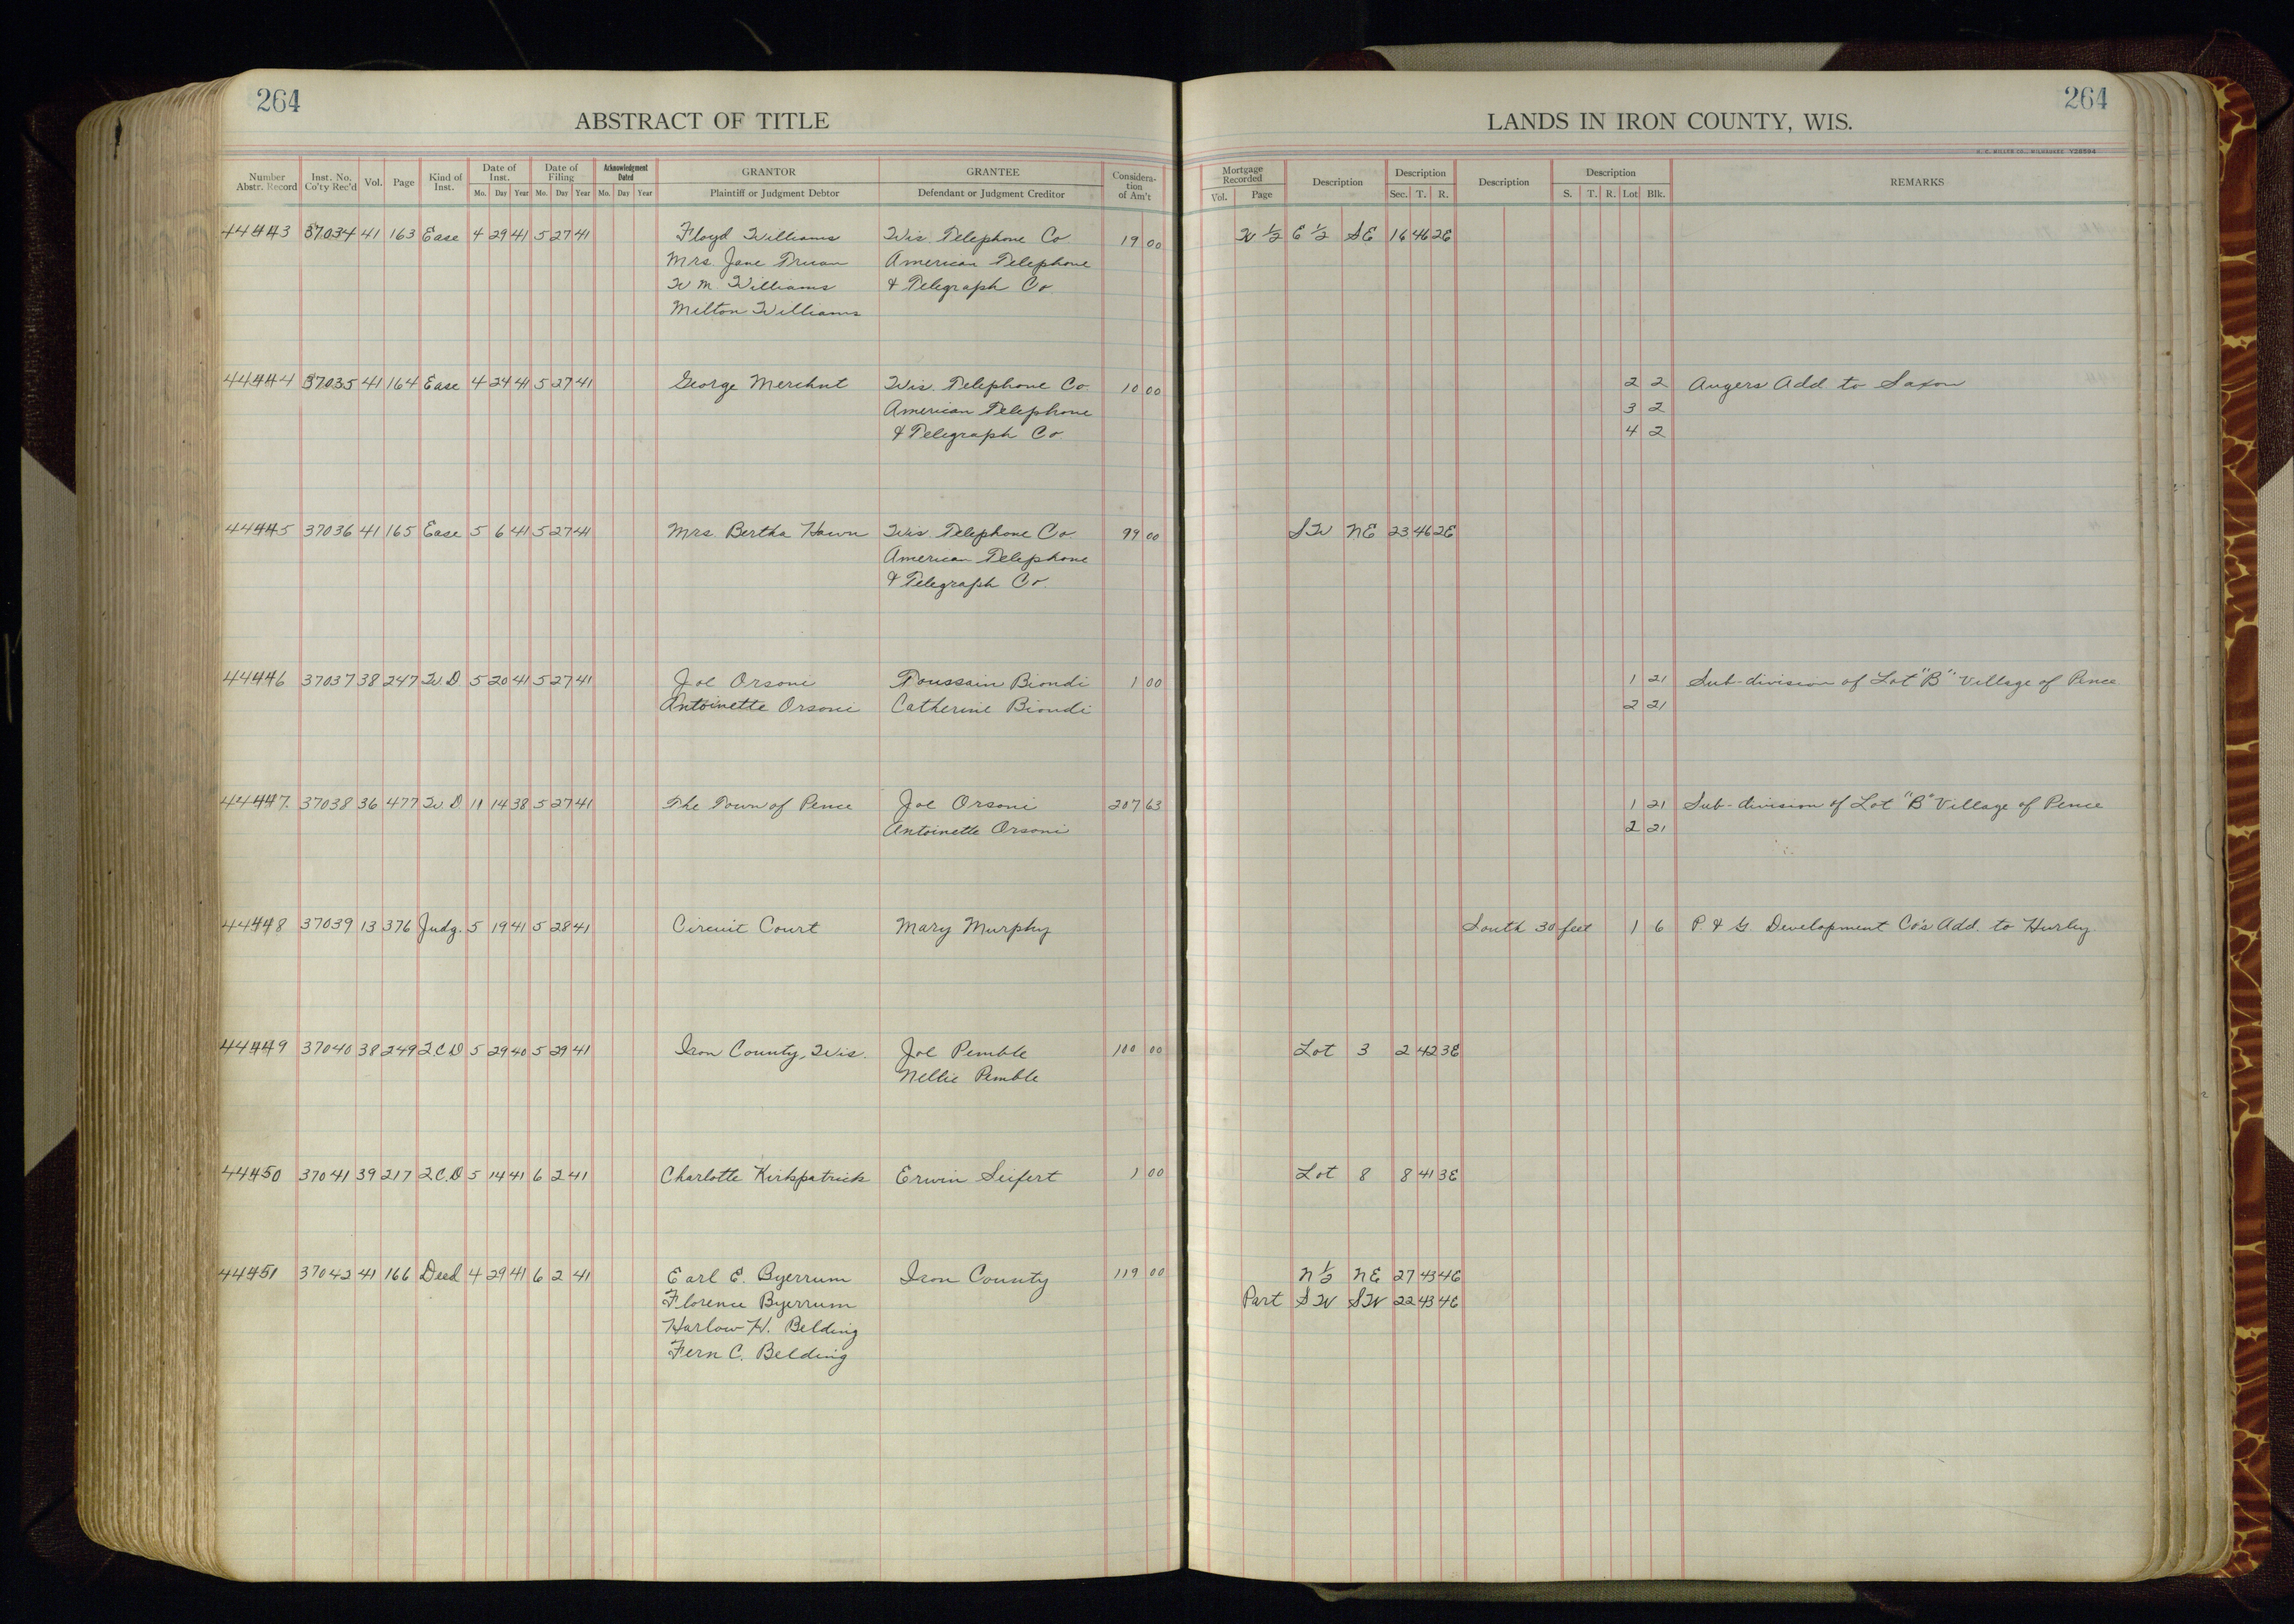 264
ABSTRACT OF TITLE
Number Abstr. Record Inst. No. Co'ty Rec'd Vol. Page Kind of Inst. Date of Inst. Mo. Day Year Date of Filing Mo. Day Year Acknowledgment Dated Mo. Day Year GRANTOR Plaintiff or Judgment Debtor GRANTEE Defendant or Judgment Creditor Considera-tion of Am't
LANDS IN IRON COUNTY, WIS.
264
H. C. MILLER CO., MILWAUKEE Y28594
Mortgage Recorded Vol. Page Description Description Sec. T. R. Description Description S. T. R. Lot Blk. REMARKS
44443 37034 41 163 Ease 4 29 41 5 27 41 Floyd Williams Wis. Telephone Co 19 00 W ½ E ½ SE 16 46 2E
Mrs. Jane Truan American Telephone
W. M. Williams & Telegraph Co
Milton Williams
44444 37035 41 164 Ease 4 24 41 5 27 41 George Merchnt Wis. Telephone Co. 10 00 2 2 Angers Add to Saxon
American Telephone 3 2
& Telegraph Co. 4 2
44445 37036 41 165 Ease 5 6 41 5 27 41 Mrs. Bertha Hawn Wis. Telephone Co. 99 00 SW NE 23 46 2E
American Telephone
& Telegraph Co.
44446 37037 38 247 W.D. 5 20 41 5 27 41 Joe Orsoni Toussain Biondi 1 00 1 21 Sub-division of Lot "B" Village of Pence
Antoinette Orsoni Catherine Biondi 2 21
44447 37038 36 477 W.D. 11 14 38 5 27 41 The Town of Pence Joe Orsoni 207 63 1 21 Sub-division of Lot "B" Village of Pence
Antoinette Orsoni 2 21
44448 37039 13 376 Judg. 5 19 41 5 28 41 Circuit Court Mary Murphy South 30 feet 1 6 P. & G. Development Co's Add. to Hurley.
44449 37040 38 249 2.C.D 5 29 40 5 29 41 Iron County, Wis. Joe Pemble 100 00 Lot 3 2 42 3E
Nellie Pemble
44450 37041 39 217 2.C.D 5 14 41 6 2 41 Charlotte Kirkpatrick Erwin Seifert 1 00 Lot 8 8 41 3E
44451 37042 41 166 Deed 4 29 41 6 2 41 Earl E. Byerrum Iron County 119 00 N ½ NE 27 43 4E
Florence Byerrum Part SW SW 22 43 4E
Harlow H. Belding
Fern C. Belding